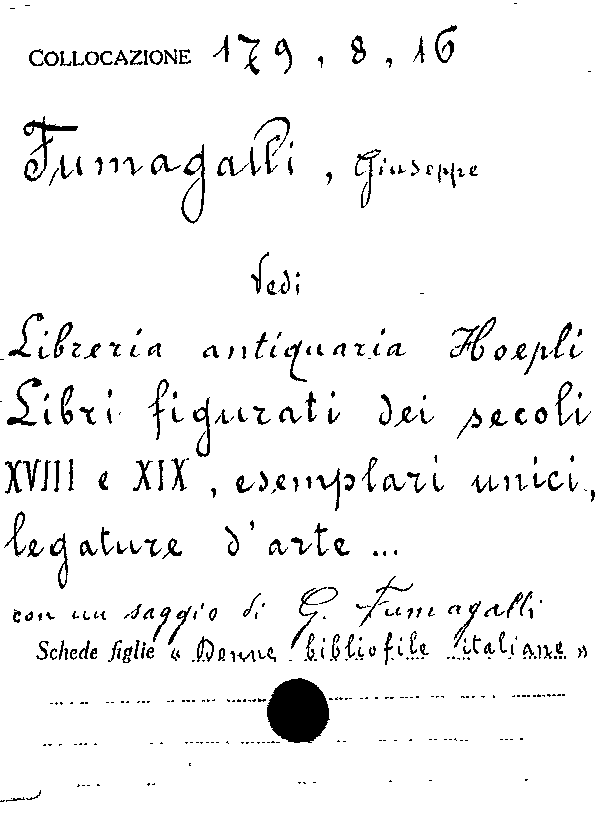 COLLOCAZIONE 179, 8, 16
Fumagalli, Giuseppe
Vedi
Libreria antiquaria Hoepli
Libri figurati dei secoli
XVIII e XIX, esemplari unici,
legature d'arte ...
con un saggio di G. Fumagalli
Schede figlie « Donne bibliofile italiane »